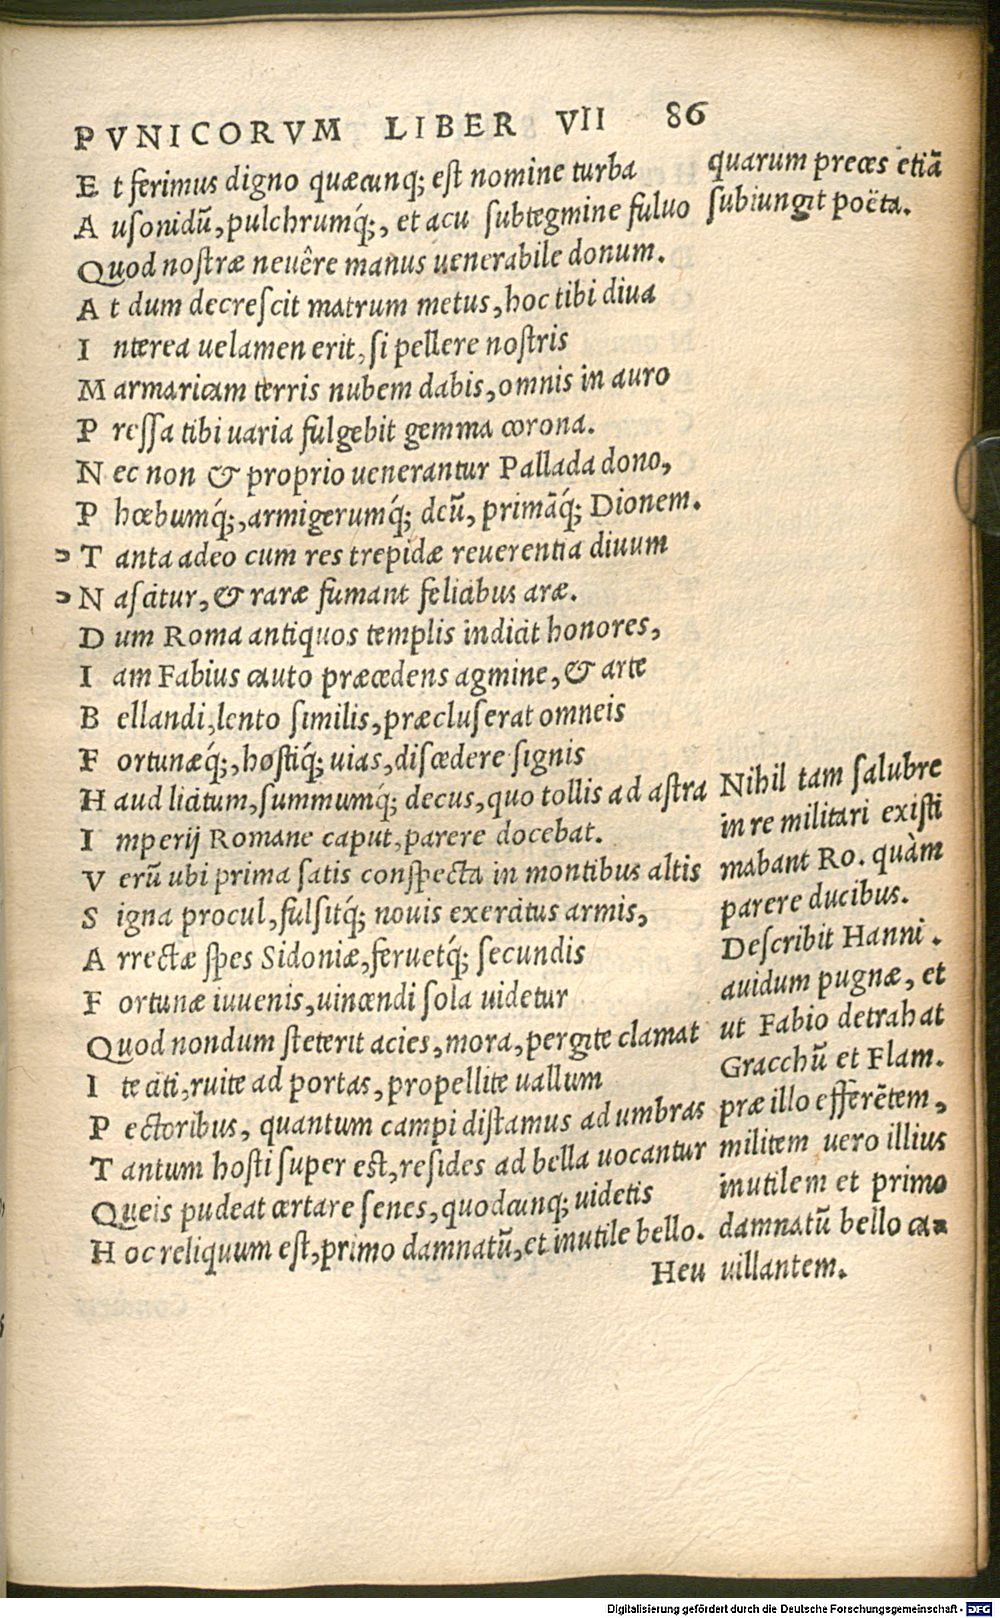 PVNICORVM LIBER VII 86
Et ferimus digno quæcunq; est nomine turba
Ausonidũ, pulchrumq́;, et acu subtegmine fuluo
Quod nostræ neuêre manus uenerabile donum.
At dum decrescit matrum metus, hoc tibi diua
Interea uelamen erit, si pellere nostris
Marmaricam terris nubem dabis, omnis in auro
Pressa tibi uaria fulgebit gemma corona.
Nec non & proprio uenerantur Pallada dono,
Phœbumq́;, armigerumq́; deũ, primãq́; Dionem.
Tanta adeo cum res trepidæ reuerentia diuum
Nascitur, & raræ fumant felicibus aræ.
Dum Roma antiquos templis indicit honores,
Iam Fabius cauto præcedens agmine, & arte
Bellandi, lento similis, præcluserat omneis
Fortunæq́;, hostiq́; uias, discedere signis
Haud licitum, summumq́; decus, quo tollis ad astra
Imperij Romane caput, parere docebat.
Verũ ubi prima satis conspecta in montibus altis
Signa procul, fulsitq́; nouis exercitus armis,
Arrectæ spes Sidoniæ, feruetq́; secundis
Fortunæ iuuenis, uincendi sola uidetur
Quod nondum steterit acies, mora, pergite clamat
Ite citi, ruite ad portas, propellite uallum
Pectoribus, quantum campi distamus ad umbras
Tantum hosti super est, resides ad bella uocantur
Queis pudeat certare senes, quodcunq; uidetis
Hoc reliquum est, primo damnatũ, et inutile bello.
Heu
quarum preces etiã
subiungit poëta.
Nihil tam salubre
in re militari existi
mabant Ro. quàm
parere ducibus.
Describit Hanni.
auidum pugnæ, et
ut Fabio detrahat
Gracchũ et Flam.
præ illo efferẽtem,
militem uero illius
inutilem et primo
damnatũ bello ca-
uillantem.
Digitalisierung gefördert durch die Deutsche Forschungsgemeinschaft - DFG